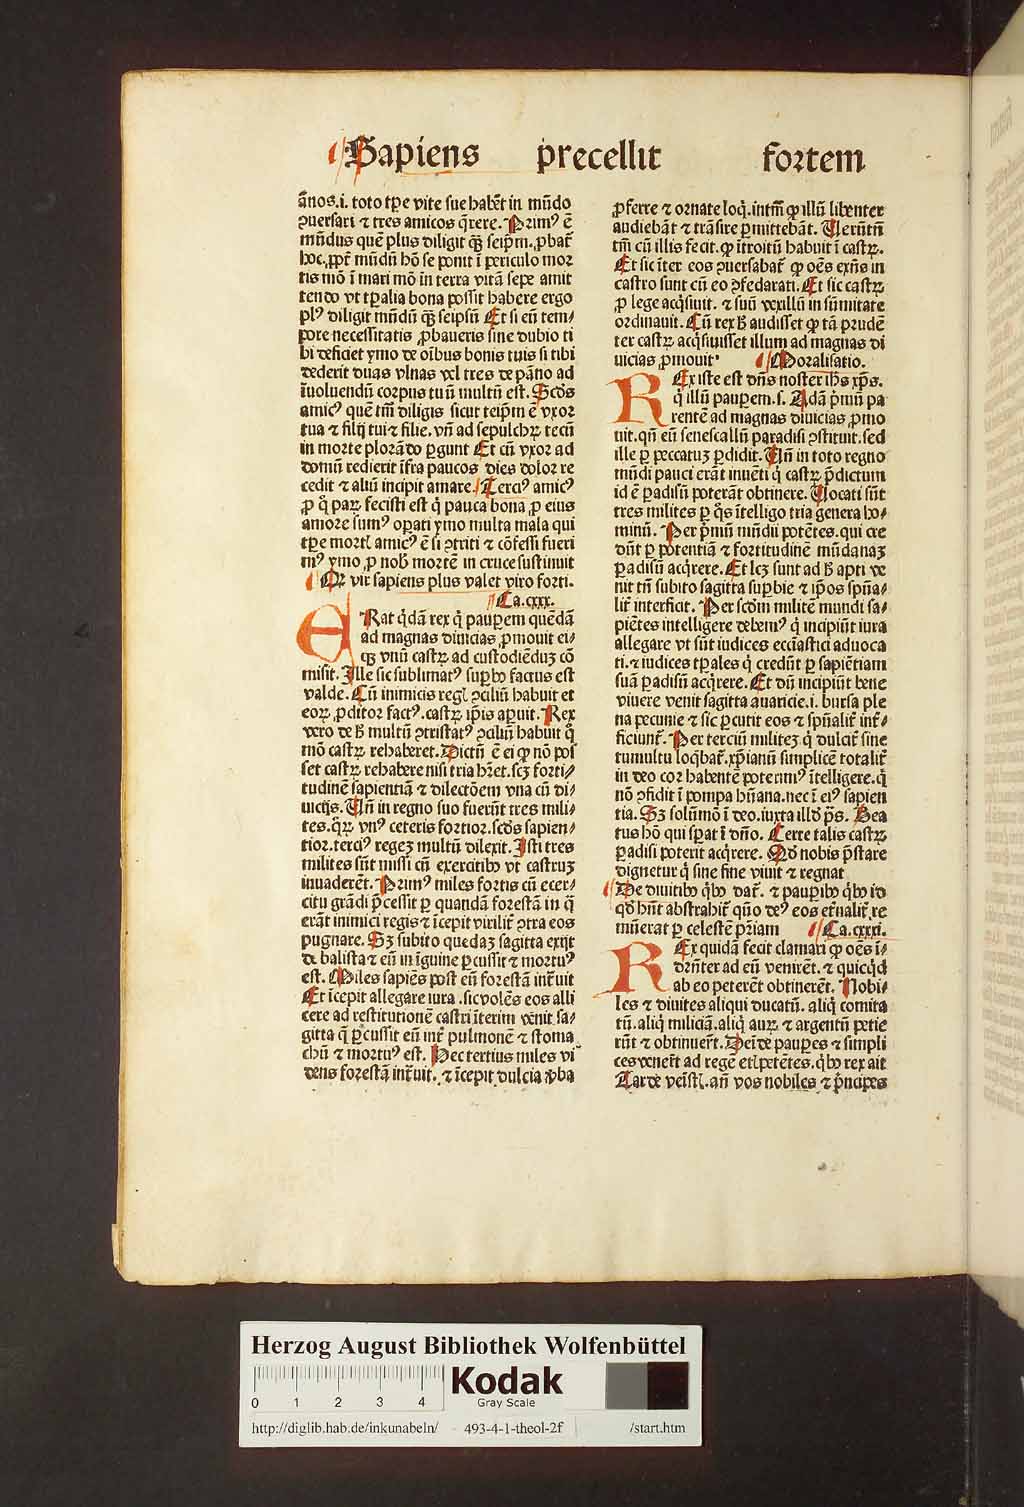 Sapiens precellit fortem
ãnos.i. toto tp̲e vite sue habẽt in mũdo
ꝯuersari ⁊ tres amicos q̃rere. Primꝰ ẽ
mũdus quẽ plus diligit qꝫ̃ seip̃m. ꝓbat̃
hoc. ꝓpt̃ mũdũ hõ se ponit ĩ periculo mor
tis mõ ĩ mari mõ in terra vitã sepe amit
tendo vt tp̲alia bona possit habere ergo
plꝰ diligit mũdũ qꝫ̃ seipsũ Et si eũ tem⸗
pore necessitatis ꝓbaueris sine dubio ti
bi deficiet ymo de oĩbus bonis tuis si tibi
dederit duas vlnas vel tres de pãno ad
ĩuoluendũ corpus tuũ multũ est. Scd̃s
amicꝰ quẽ tm̃ diligis sicut teip̃m ẽ vxor
tua ⁊ filij tui ⁊ filie. vñ ad sepulchꝝ tecũ
in morte plorãdo ꝑgunt Et cũ vxor ad
domũ redierit ĩfra paucos dies dolor re
cedit ⁊ aliũ incipit amare. Terciꝰ amicꝰ
ꝓ q̊ paꝝ fecisti est q̊ pauca bona ꝓ eius
amore sumꝰ oꝑati ymo multa mala qui
tp̲e mortꝭ amicꝰ ẽ si ꝯtriti ⁊ cõfessi fueri
mꝰ ymo ꝓ nob̃ mortẽ in cruce sustinuit
Ꝙ vir sapiens plus valet viro forti.
Ca.cxxx.
ERat q̊dã rex q̊ pauꝑem quẽdã
ad magnas diuicias ꝓmouit ei⸗
qꝫ vnũ castꝝ ad custodiẽduꝫ cõ
misit. Ille sic sublimatꝰ suꝑbꝰ factus est
valde. Cũ inimicis regꝭ ꝯciliũ habuit et
eoꝝ ꝓditor factꝰ. castꝝ ip̃is aꝑuit. Rex
vero de h̃ multũ ꝯtristatꝰ ꝯciliũ habuit q̊
mõ castꝝ rehaberet. Dictũ ẽ ei ꝙ nõ pos
set castꝝ rehabere nisi tria hr̃et. scꝫ forti⸗
tudinẽ sapientiã ⁊ dilectõem vna cũ di⸗
uicijs. Tũ in regno suo fuerũt tres mili⸗
tes. qꝝ vnꝰ ceteris fortior. scd̃s sapien⸗
tior. terciꝰ regeꝫ multũ dilexit. Isti tres
milites sũt missi cũ exercitibꝰ vt castruꝫ
inuaderẽt. Primꝰ miles fortis cũ ecer⸗
citu grãdi p̃cessit ꝑ quandã forestã in q̃
erãt inimici regis ⁊ ĩcepit virilit̃ ꝯtra eos
pugnare. Sꝫ subito quedaꝫ sagitta exijt
de balista ⁊ eũ in ĩguine ꝑcussit ⁊ mortuꝰ
est. Miles sapiẽs post eũ forestã int̃uit
Et ĩcepit allegare iura .sic volẽs eos alli
cere ad restitutionẽ castri ĩterim venit sa⸗
gitta q̃ ꝑcussit eũ int̃ pulmonẽ ⁊ stoma
chũ ⁊ mortuꝰ est. Hec tertius miles vi⸗
dens forestã int̃uit. ⁊ ĩcepit dulcia v̾ba
ꝓferre ⁊ ornate loq̇. intm̃ ꝙ illũ libenter
audiebãt ⁊ trãsire ꝑmittebãt. Uerũtñ
tm̃ cũ illis fecit. ꝙ ĩtroitũ habuit ĩ castꝝ.
Et sic ĩter eos ꝯuersabat̃ ꝙ oẽs exñs in
castro sunt cũ eo ꝯfedarati. Et sic castꝝ
ꝓ lege acq̇siuit. ⁊ suũ vexillũ in sũmitate
ordinauit. Cũ rex h̃ audisset ꝙ tã prudẽ
ter castꝝ acq̇siuisset illum ad magnas di
uicias ꝓmouit. Moralisatio.
REx iste est dñs noster ih̃s xp̃s.
q̇ illũ pauꝑem .s. Adã p̊mũ pa
rentẽ ad magnas diuicias ꝓmo
uit. qñ eũ senescallũ paradisi ꝯstituit. sed
ille ꝑ peccatuꝫ ꝑdidit. Uñ in toto regno
mũdi pauci erãt inuẽti q̇ castꝝ p̃dictum
id ẽ ꝑadisũ poterãt obtinere. Uocati sũt
tres milites ꝑ q̊s ĩtelligo tria genera ho⸗
minũ. Per p̊mũ mũdũ potẽtes. qui cre
dũt ꝑ potentiã ⁊ fortitudinẽ mũdanaꝫ
ꝑadisũ acq̇rere. Et lcꝫ sunt ad h̃ apti ve
nit tñ subito sagitta suꝑbie ⁊ ip̃os sp̃ua⸗
lit̃ interficit. Per scd̃m militẽ mundi sa⸗
piẽtes intelligere debemꝰ q̇ incipiũt iura
allegare vt sũt iudices ecciastici aduoca
ti. ⁊ iudices tp̲ales q̇ credũt ꝑ sapiẽtiam
suã ꝑadisũ acq̇rere. Et dũ incipiũt bene
viuere venit sagitta auaricie .i. bursa ple
na pecunie ⁊ sic ꝑcutit eos ⁊ sp̃ualit̃ int̃⸗
ficiunt̃. Per terciũ militeꝫ q̇ dulcit̃ sine
tumultu loq̇bat̃. xp̃ianũ simplicẽ totalit̃
in deo cor habentẽ poterimꝰ ĩtelligere. q̇
nõ ꝯfidit ĩ pompa hũana. nec ĩ eiꝰ sapien
tia. Sꝫ solũmõ ĩ deo. iuxta illd̃ p̃s. Bea
tus hõ qui sꝑat ĩ dño. Certe talis castꝝ
ꝑadisi poterit acq̇rere. Qd̃ nobis p̃stare
dignetur q̇ sine fine viuit ⁊ regnat
De diuitibꝰ q̇bꝰ dat̃. ⁊ pauꝑibꝰ q̇bꝰ id
qd̃ hñt abstrahit̃ quõ deꝰ eos et̃nalit̃ re
mũerat ꝑ celestẽ pr̃iam Ca.cxxxi.
REx quidã fecit clamari ꝙ oẽs ĩ⸗
drñter ad eũ venirẽt. ⁊ quicq̇d
ab eo peterẽt obtinerẽt. Nobi⸗
les ⁊ diuites aliqui ducatũ. aliq̇ comita
tũ. aliq̇ miliciã. aliq̇ auꝝ ⁊ argentũ petie
rũt ⁊ obtinuer̃t. Deĩde pauꝑes ⁊ simpli
ces vener̃t ad regẽ et ꝑpetẽtes. q̇bꝰ rex ait
Tarde veĩstꝭ. añ vos nobiles ⁊ p̊ncipes
Herzog August Bibliothek Wolfenbüttel
0 1 2 3 4
Kodak
Gray Scale
http://diglib.hab.de/inkunabeln/ - 493-4-1-theol-2f /start.htm